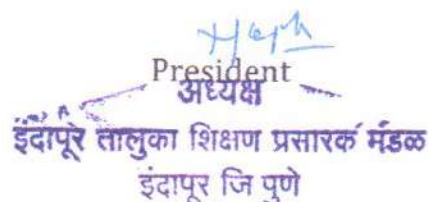 President
अध्यक्ष
इंदापूर तालुका शिक्षण प्रसारक मंडळ
इंदापूर जि पुणे